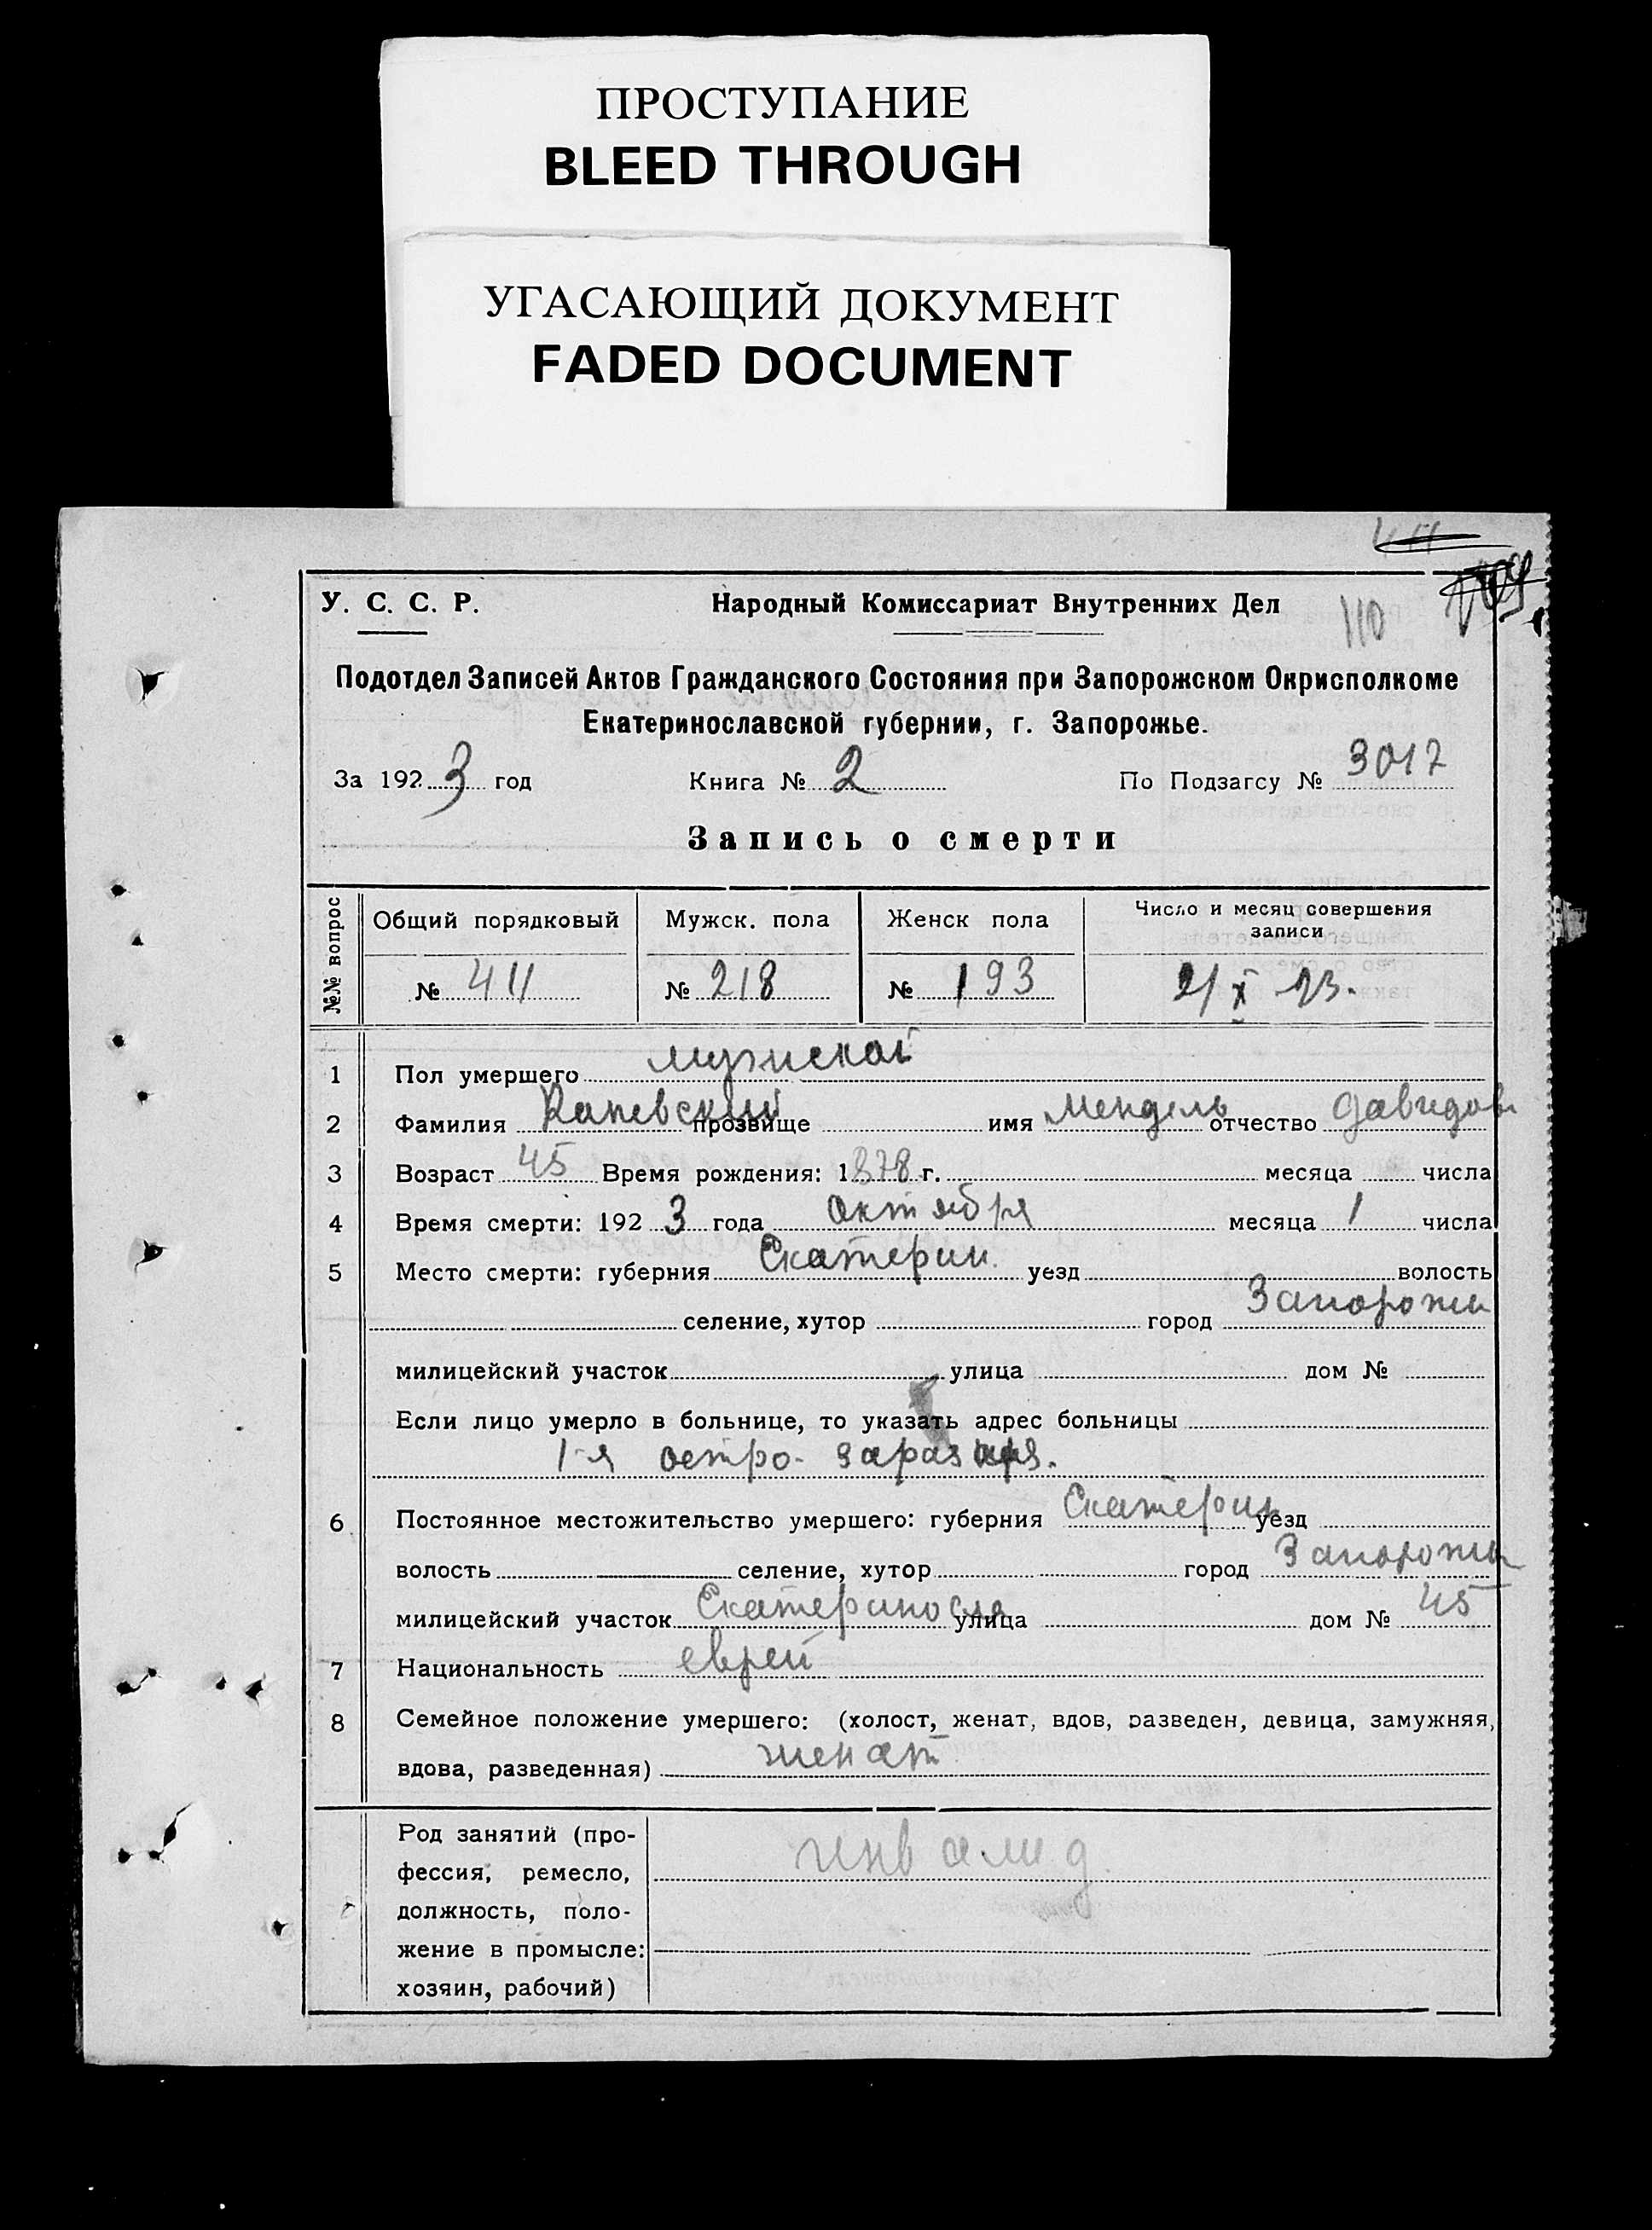 ПРОСТУПАНИЕ
BLEED THROUGH
УГАСАЮЩИЙ ДОКУМЕНТ
FADED DOCUMENT
У. С. С. Р. Народный Комиссариат Внутренних Дел 110
Подотдел Записей Актов Гражданского Состояния при Запорожском Окрисполкоме
Екатеринославской губернии, г. Запорожье.
За 1923 год Книга № 2 По Подзагсу № 3017
Запись о смерти
№№ вопрос Общий порядковый Мужск. пола Женск пола Число и месяц совершения
записи
№ 411 № 218 № 193 2/X 23.
1 Пол умершего мужской
2 Фамилия Каневский прозвище имя Мендель отчество Давидов
3 Возраст 45 Время рождения: 1878 г. месяца числа
4 Время смерти: 1923 года октября месяца 1 числа
5 Место смерти: губерния Екатерин. уезд волость
селение, хутор город Запорожьи
милицейский участок улица дом №
Если лицо умерло в больнице, то указать адрес больницы
1-я остро-заразная.
6 Постоянное местожительство умершего: губерния Екатерин уезд
волость селение, хутор город Запорожьи
милицейский участок Екатериносла улица дом № 45
7 Национальность еврей
8 Семейное положение умершего: (холост, женат, вдов, разведен, девица, замужняя,
вдова, разведенная) женат
Род занятий (про-
фессия, ремесло, инвалид
должность, поло-
жение в промысле:
хозяин, рабочий)